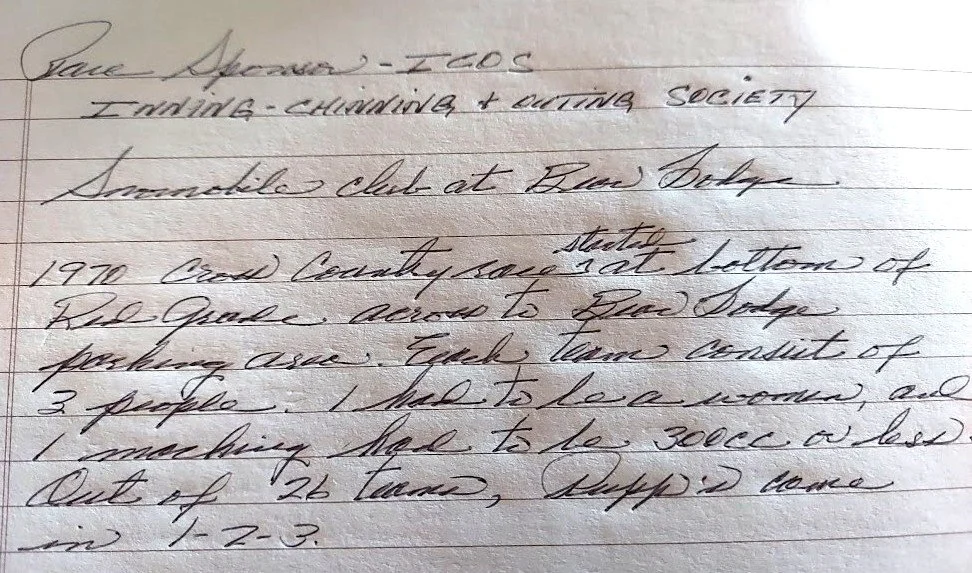 Race Sponsor - ICOS
INNING - CHINNING + OUTING SOCIETY
Snomobile club at Bear Lodge.
1970 Cross Country race started at bottom of
Red Grade across to Bear Lodge
parking area. Each team consist of
3 people. 1 had to be a women, and
1 maching had to be 300cc or less.
Out of 26 teams, Rupp's come
in 1-2-3.